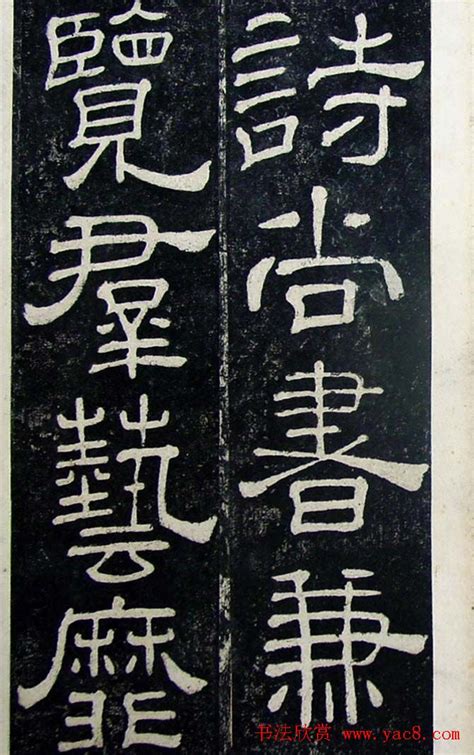 詩尚書兼
覽羣藝靡
书法欣赏 www.yac8.com